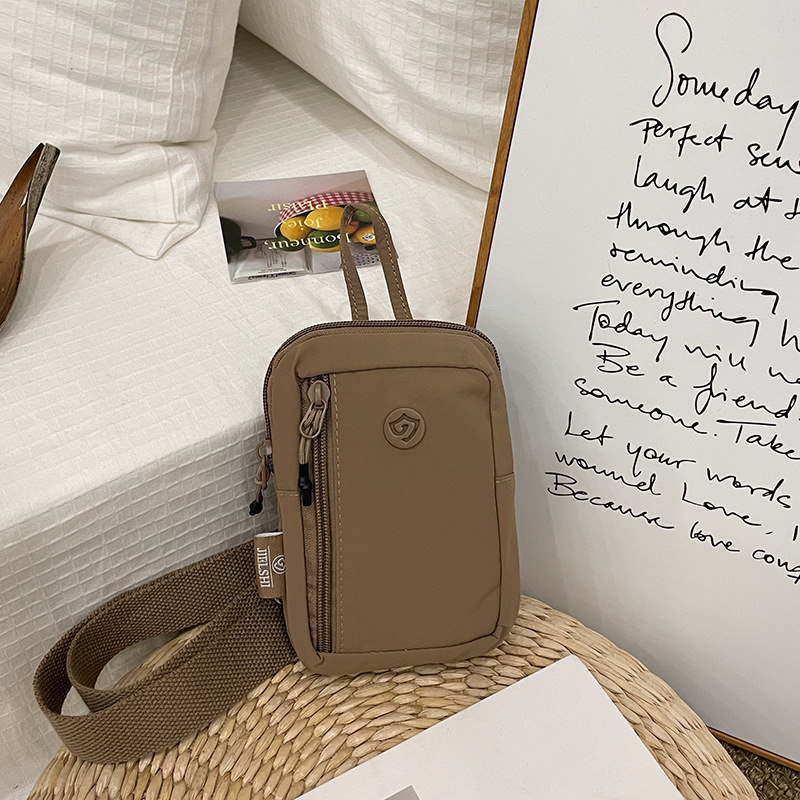 Someday
Perfect sens
Laugh at t
through the
reminding
everything h
Today will
Be a friend
someone. Take
Let your words
wound Love,
Because love
Plaisir
Joie
Bonheur.
JIELSHI